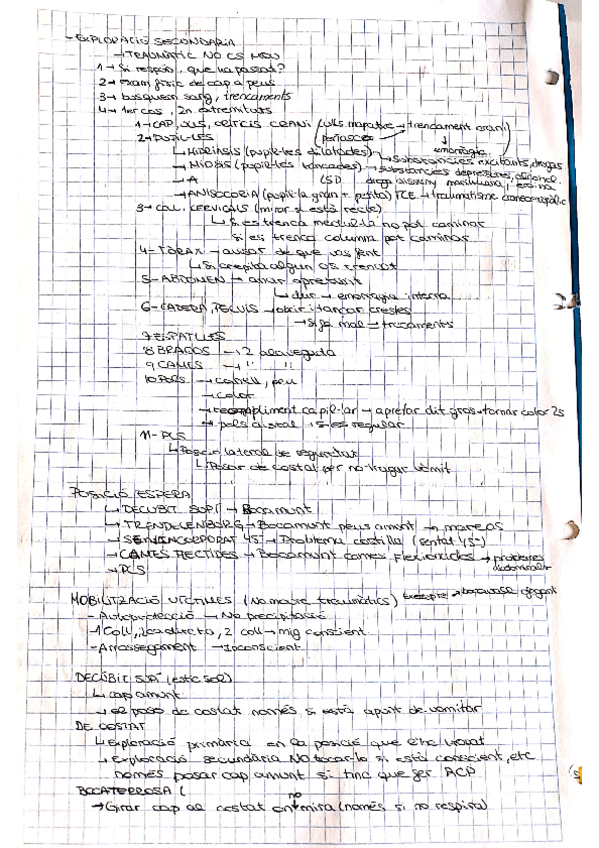 - EXPLORACIÓ SECONDARIA
→ TRAUMÀTIC NO ES MOU
1→ Si respon, que ha passat?
2→ exam físic de cap a peus
3→ busquem sang, trencaments
4→ 1er cos, 2n extremitats
1→ CAP, ULLS, ORIFICIS CRANI (ulls mapatxe → trencament crani)
2→ PUPIL·LES
↳ MIDRIASIS (pupil·les dilatades) → Substàncies excitants, drogas
↳ MIOSIS (pupil·les tancades) → substàncies depressives,
↳ A LSD
↳ ANISOCORIA (pupil·la gran + petita) TCE → traumatisme
3→ COL. CERVICALS (mirar si està recte)
↳ Si es trenca medul·la no pot caminar
Si es trenca columna pot caminar
4→ TÒRAX → avisar de que vas fent
↳ Si crepita algun os trencat
5→ ABDOMEN → anar apretant
↳ dur → emorragia interna
6→ CADERA, PELVIS → obrir i tancar crestes
→ Si fa mal → trencaments
7 ESPATLLES
8 BRAÇOS → 2 alavegada
9 CAMES → " "
10 POLS → canell, peu
→ color
→ recompliment capil·lar → apretar dit gros → tornar color 2s
→ pols distal → si es regular
11→ PLS
↳ Posició lateral de seguretat
↳ Posar de costat per no vomit
POSICIÓ ESPERA
↳ DECUBIT SUPÍ → Bocamunt
↳ TRENDELENBORG → Bocamunt peus amunt → mareos
↳ SEMIENCORPORAT 45° → Problema costilla (sentat 45°)
↳ CAMES FLECTIDES → Bocamunt cames flexionades → problemes abdominals
→ PLS
MOBILITZACIÓ VÍCTIMES (No moure traumàtics)
- Autoprotecció → No precipitació
- 1 Coll, 2 cadireta, 2 coll → mig conscient.
- Arrossegament → Inconscient
DECÚBIT SUPÍ (estic sol)
↳ cap amunt
→ el poso de costat només si està apunt de vomitar
DE COSTAT
↳ Exploració primària en la posició que l'he trobat
→ exploració secundària NO tocar-lo si està conscient, etc
només posar cap amunt si tinc que fer RCP
BOCATERROSA (
→ Girar cap al costat on no mira (només si no respira)